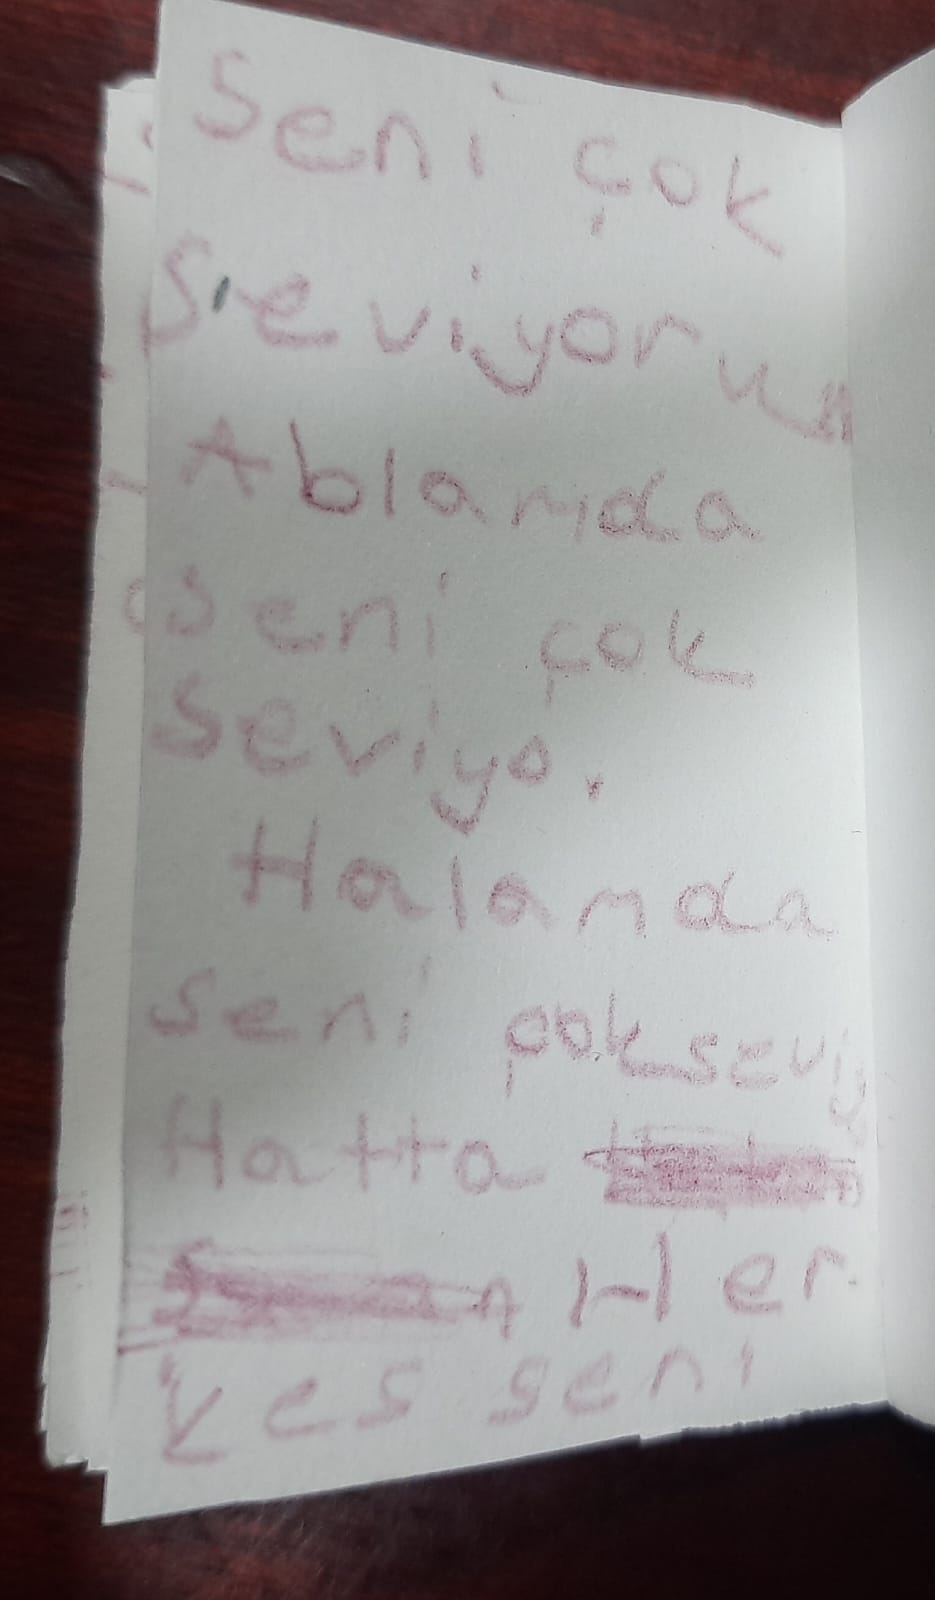 Seni çok
Seviyorum
Ablamda
Seni çok
Seviyo.
Halamda
Seni çokseviy
Hatta
Her
kes seni